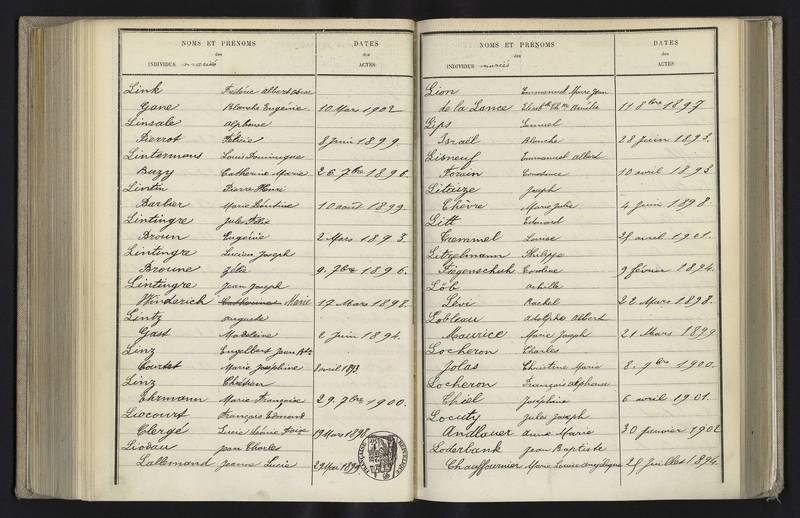 NOMS ET PRÉNOMS
DATES
des
des
INDIVIDUS mariés
ACTES
Link Frédéric Albert Oscar
Gane Blanche Eugénie 10 Mars 1902
Linsale Alphonse
Pierrot 8 Juin 1899.
Lintermans Louis Dominique
Buzy Catherine Marie 26. 7bre 1896.
Lintin Pierre Henri
Barbier Marie Léontine 10 août 1899.
Lintingre Jules Félix
Broun Eugénie 2 Mars 1893.
Lintingre Lucien Joseph
Broune Zélie 9. 7bre 1896.
Lintingre Jean Joseph
Winderich Catherine Marie 17 Mars 1898.
Lintz Auguste
Gast Madeleine 2 Juin 1894.
Linz Engelbert Jean Bte
Courtet Marie Joséphine 8 avril 1893.
Linz Chrétien
Ehrmann Marie Françoise 29. 7bre 1900.
Liocourt François Edmond
Clergé Lucie Marie 19 Mars 1898
Liodau Jean Charles
Lallemand Jeanne Lucie
NOMS ET PRÉNOMS
DATES
des
des
INDIVIDUS mariés
ACTES
Lion Emmanuel Marie Jean
de la Lance Amélie 11 8bre 1897.
Lips Samuel
Israël Blanche 28 Juin 1893.
Lisneuf Emmanuel Albert
Forain Constance 10 avril 1893
Litaize Joseph
Chèvre Marie Julie 4 Juin 1898.
Litt Edouard
Tremmel Louise 25 avril 1901.
Litzelmann Philippe
Fiegenschuh Caroline 9 février 1894.
Löb Achille
Lévi Rachel 22 Mars 1898.
Lobleau Adolphe Albert
Maurice Marie Joseph 21 Mars 1899
Locheron Charles
Jolas Christine Marie 8. 9bre 1900.
Locheron François Alphonse
Thiel Joséphine 6 avril 1901.
Locuty Jules Joseph
Andlauer Anne Marie 30 Janvier 1902
Loderbank Jean Baptiste
Chauffournier Marie Louise Angélique 25 Juillet 1894.